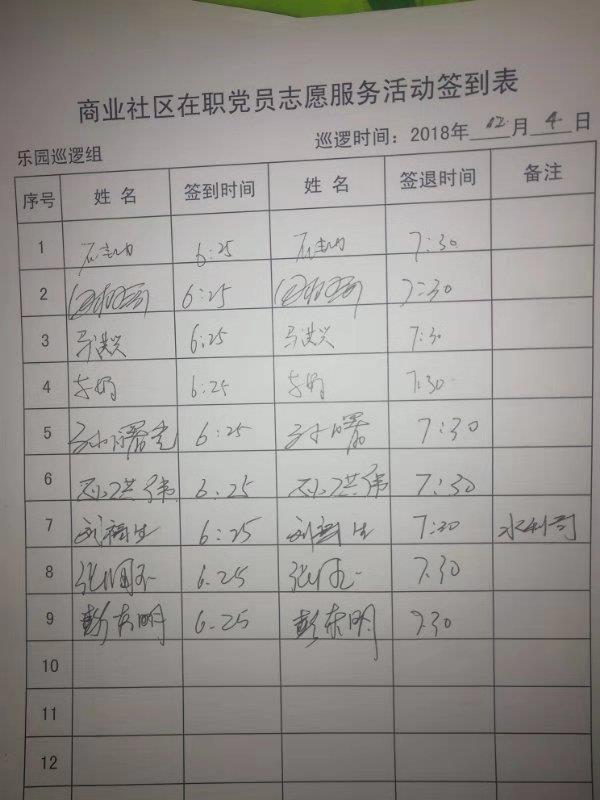 商业社区在职党员志愿服务活动签到表
乐园巡逻组 巡逻时间：2018年 12 月 4 日
序号 姓名 签到时间 姓名 签退时间 备注
1 6:25 7:30
2 6:25 7:30
3 马洪兴 6:25 马洪兴 7:30
4 6:25 7:30
5 孙曙光 6:25 孙曙 7:30
6 孙洪伟 6.25 孙洪伟 7:30
7 刘福生 6:25 刘福生 7:30 水利司
8 6.25 7.30
9 彭东明 6.25 彭东明 7.30
10
11
12